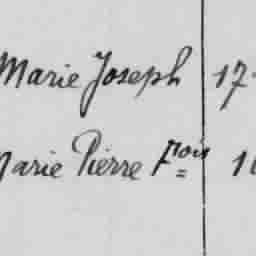 Marie Joseph 17
Marie Pierre Fçois 1